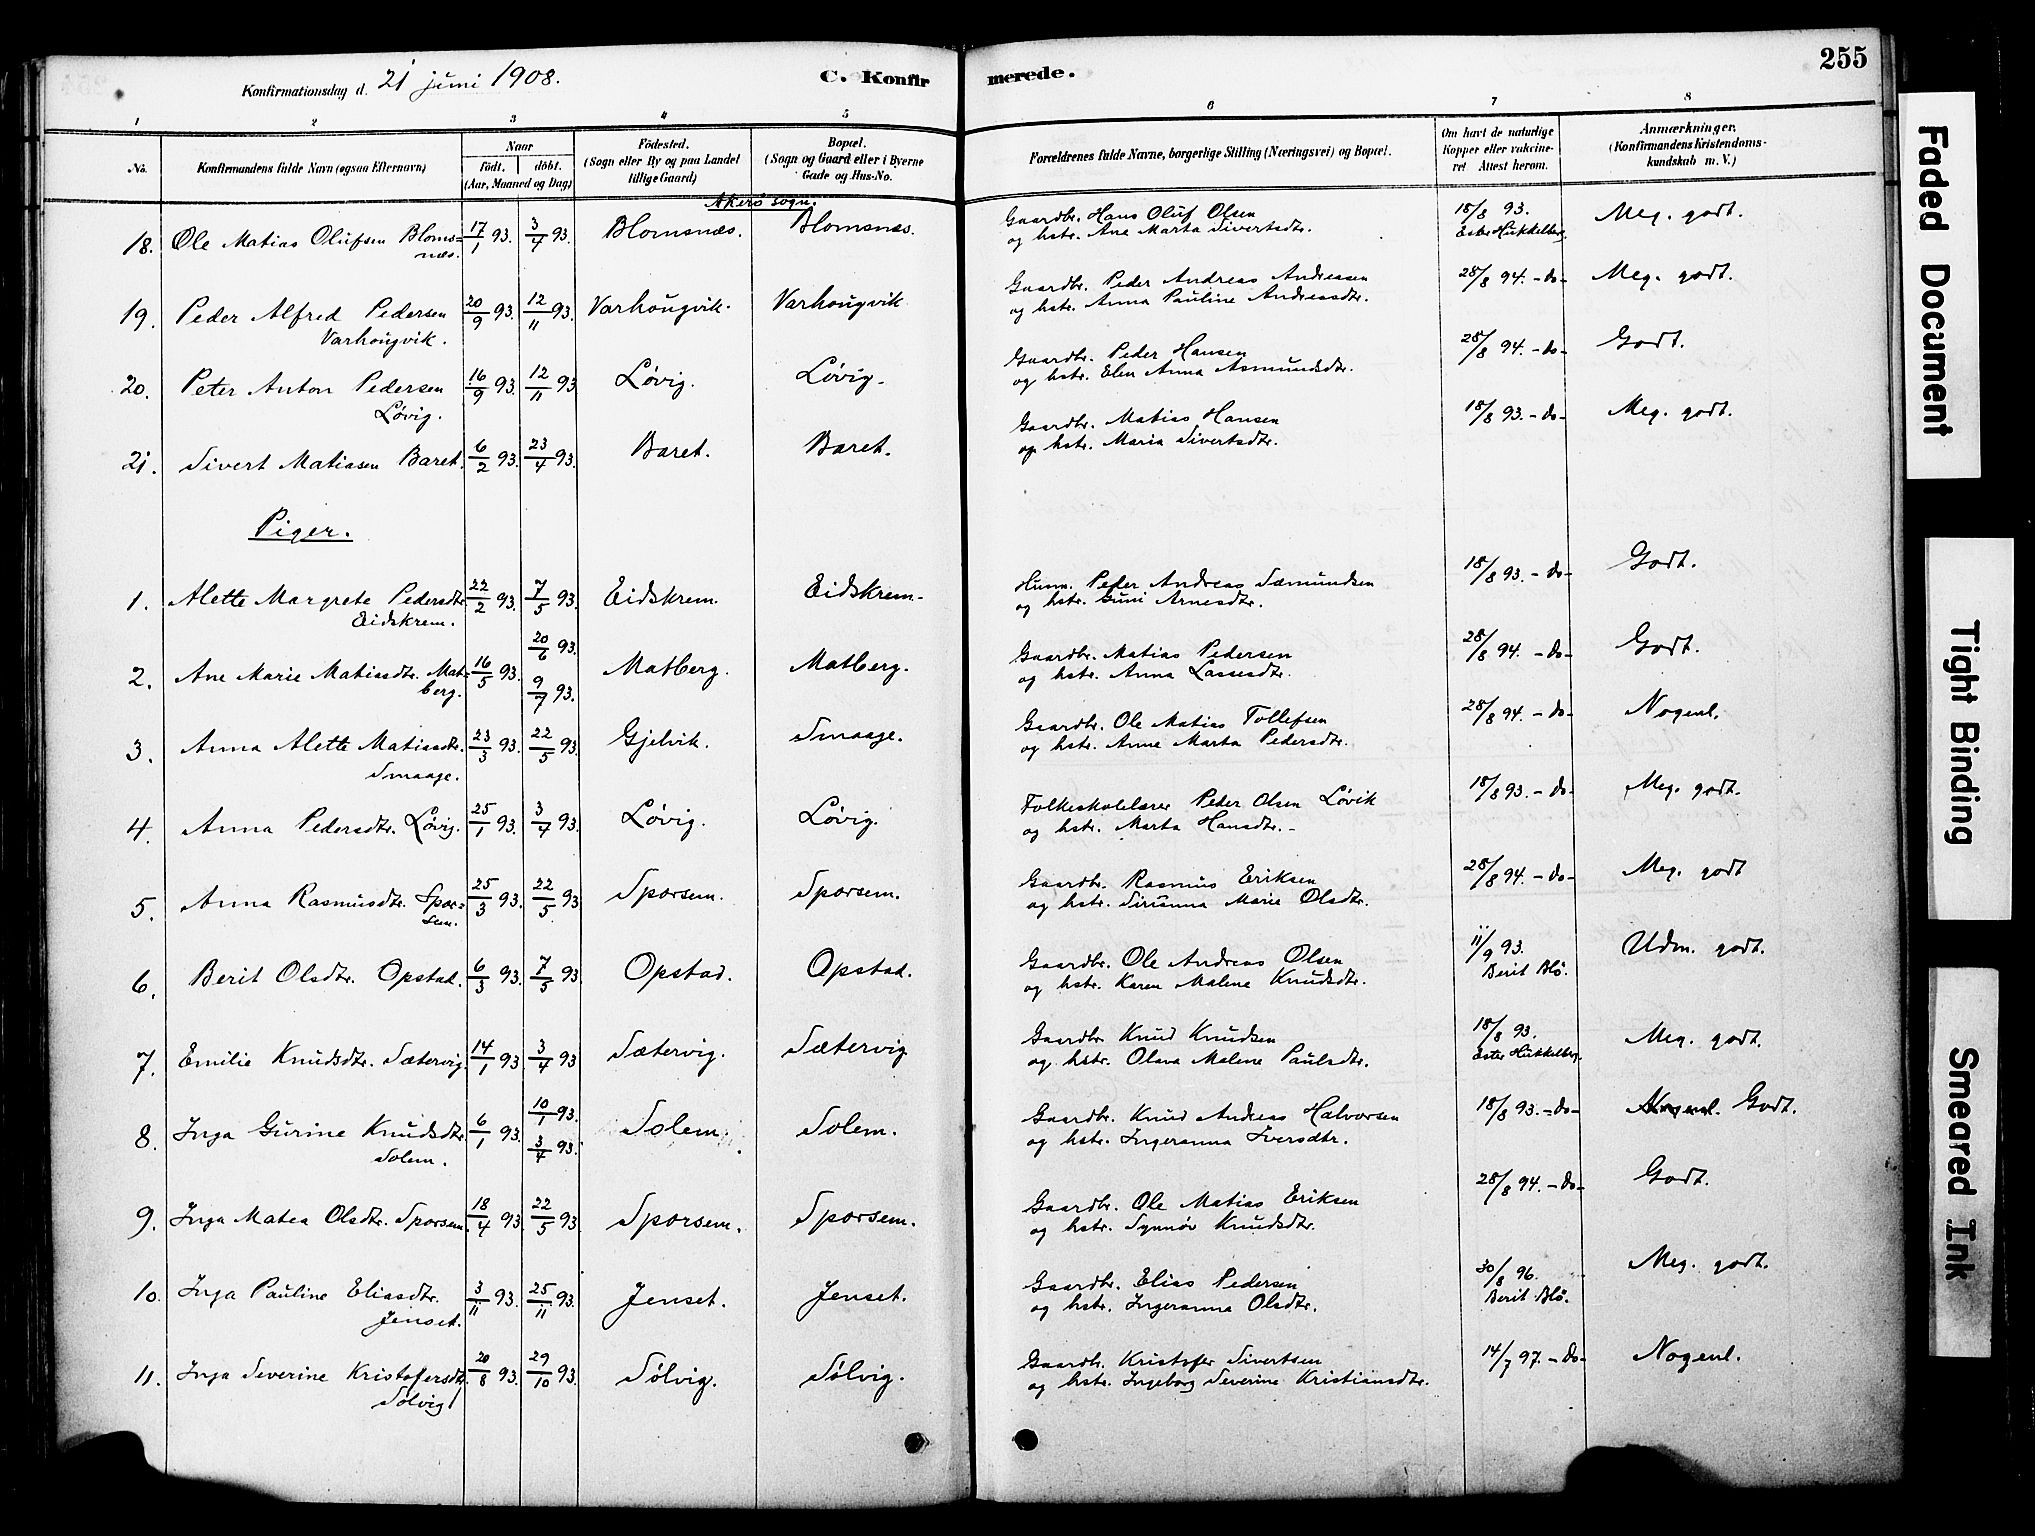 255
Konfirmationsdag d. 21 juni 1908.
C. Konfir
merede.
1 2 3 4 5 6 7 8
No.
Konfirmandens fulde Navn (ogsaa Efternavn)
Naar
födt. döbt.
(Aar, Maaned og Dag)
Födested.
(Sogn eller By og paa Landet
tillige Gaard)
Bopæl.
(Sogn og Gaard eller i Byerne
Gade og Hus-No.
Forældrenes fulde Navne, borgerlige Stilling (Næringsvei) og Bopæl.
Om havt de naturlige
Kopper eller vakcine-
ret Attest herom.
Anmærkninger.
(Konfirmandens Kristendoms-
kundskab m. V.)
Akerø sogn.
18. Ole Matias Olufsen Bloms- 17/1 93. 3/4 93. Blomsnæs. Blomsnæs. Gaardbr. Hans Oluf Olsen 18/8 93. Meg. godt.
næs. og hstr. Ane Marta Sivertsdtr. Ester Hukkelberg.
19. Peder Alfred Pedersen 20/9 93. 12/11 93. Varhougvik. Varhougvik Gaardbr. Peder Andreas Andreasen 28/8 94. -do- Meg. godt.
Varhougvik. og hstr. Anna Pauline Andreasdtr.
20. Peter Anton Pedersen 16/9 93. 12/11 93 Løvig. Løvig. Gaardbr. Peder Hansen 28/8 94. -do- Godt.
Løvig. og hstr. Elen Anna Asmundsdtr.
21. Sivert Matiasen Baret. 6/2 93. 23/4 93. Baret. Baret. Gaardbr. Matias Hansen 18/8 93. -do- Meg. godt.
og hstr. Maria Sivertsdtr.
Piger.
1. Alette Margrete Pedersdtr. 22/2 93. 7/5 93. Eidskrem. Eidskrem. Husm. Peder Andreas Sæmundsen 18/8 93. -do- Godt.
Eidskrem. og hstr. Guni Arnesdtr.
2. Ane Marie Matiasdtr. Mat- 16/5 93. 20/6 93. 9/7 93. Matberg. Matberg. Gaardbr. Matias Pedersen 28/8 94. -do- Godt.
berg. og hstr. Anna Lassesdtr.
3. Anna Alette Matiasdtr. 23/3 93. 22/5 93. Gjelvik. Smaage. Gaardbr. Ole Matias Tollefsen 28/8 94. -do- Nogenl.
Smaage. og hstr. Anne Marta Pedersdtr.
4. Anna Pedersdtr. Løvig. 25/1 93. 3/4 93. Løvig. Løvig. Folkeskolelærer Peder Olsen Løvik 18/8 93. -do- Meg. godt.
og hstr. Marta Hansdtr. -
5. Anna Rasmusdtr. Spor- 25/3 93. 22/5 93 Sporsem. Sporsem. Gaardbr. Rasmus Eriksen 28/8 94. -do- Meg. godt
sem. og hstr. Sirianna Marie Olsdtr.
6. Berit Olsdtr. Opstad. 6/3 93. 7/5 93. Opstad. Opstad. Gaardbr. Ole Andreas Olsen 11/9 93. Udm. godt.
og hstr. Karen Malene Knudsdtr. Berit Blø.
7. Emilie Knudsdtr. Sætervig. 14/1 93. 3/4 93 Sætervig. Sætervig Gaardbr. Knud Knudsen 18/8 93. Meg. godt.
og hstr. Olava Malene Paulsdtr. Ester Hukkelberg.
8. Inga Gurine Knudsdtr. 6/1 93. 10/1 93. 3/4 93. Solem. Solem. Gaardbr. Knud Andreas Halvorsen 18/8 93. -do- Nogenl. Godt.
Solem. og hstr. Ingeranna Iversdtr.
9. Inga Matea Olsdtr. Sporsem. 18/4 93. 22/5 93. Sporsem. Sporsem. Gaardbr. Ole Matias Eriksen 28/8 94. -do- Godt.
og hstr. Synnøv Knudsdtr.
10. Inga Pauline Eliasdtr. 3/11 93. 25/11 93. Jenset. Jenset. Gaardbr. Elias Pedersen 30/8 96. Meg. godt.
Jenset. og hstr. Ingeranna Olsdtr. Berit Blø.
11. Inga Severine Kristofersdtr. 20/8 93. 29/10 93. Sølvig. Sølvig. Gaardbr. Kristofer Sivertsen 14/7 97. -do- Nogenl.
Sølvig og hstr. Ingeborg Severine Kristiansdtr.
Faded Document
Tight Binding
Smeared Ink